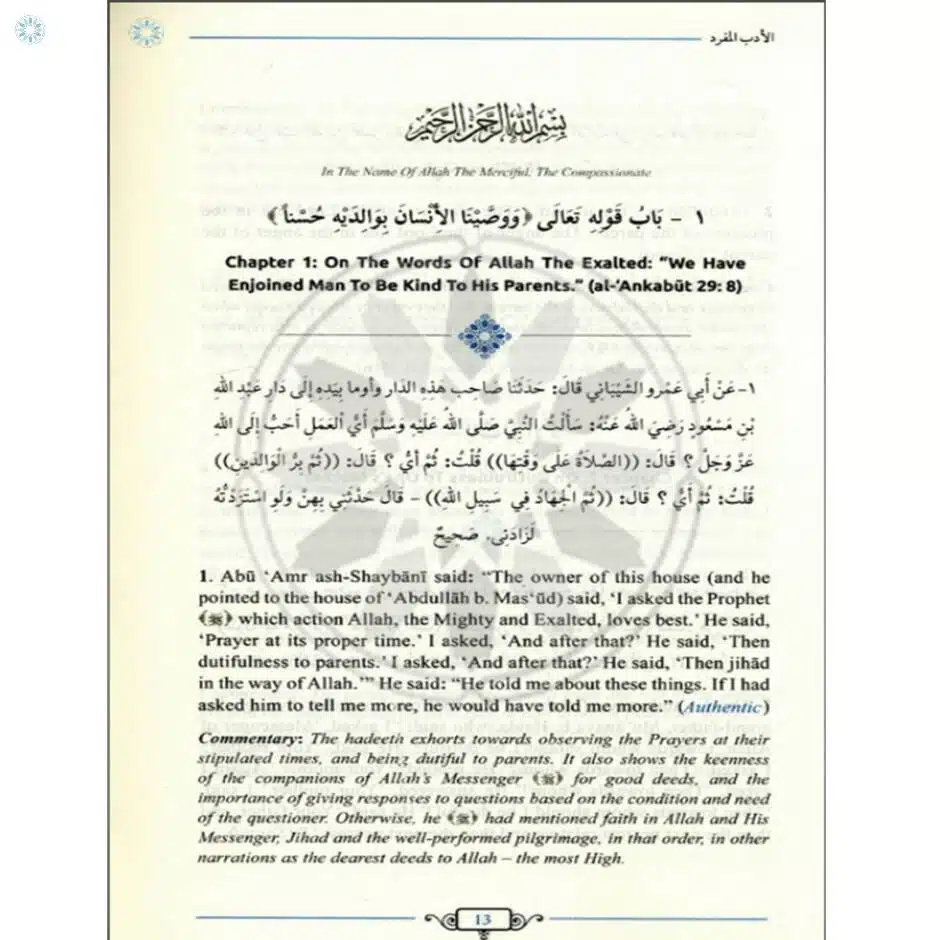 الأدب المفرد
بِسْمِ اللهِ الرَّحْمٰنِ الرَّحِيْمِ
In The Name Of Allah The Merciful, The Compassionate
١ - بَابُ قَوْلِهِ تَعَالَى ﴿وَوَصَّيْنَا الْأِنْسَانَ بِوَالِدَيْهِ حُسْناً﴾
Chapter 1: On The Words Of Allah The Exalted: “We Have
Enjoined Man To Be Kind To His Parents.” (al-‘Ankabūt 29: 8)
١-عَنْ أَبِي عَمْرو الشَّيْبَانِي قَالَ: حَدَثَنَا صَاحِب هَذِهِ الدَّار وأوما بِيَدِهِ إِلَى دَار عَبْدِ اللهِ
بْنِ مَسْعُودٍ رَضِيَ اللهُ عَنْهُ: سَأَلْتُ النَّبِيَّ صَلَّى اللهُ عَلَيْهِ وَسَلَّمَ أَيُّ العَمَلِ أَحَبُّ إِلَى اللهِ
عَزَّ وَجَلَّ ؟ قَالَ: ((الصَّلَاةُ عَلَى وَقْتِهَا)) قُلْتُ: ثُمَّ أَيُّ ؟ قَالَ: ((ثُمَّ بِرُّ الْوَالِدَيْنِ))
قُلْتُ: ثُمَّ أَيُّ ؟ قَالَ: ((ثُمَّ الْجِهَادُ فِي سَبِيلِ اللهِ)) - قَالَ حَدَّثَنِي بِهِنَّ وَلَوِ اسْتَزَدْتُهُ
لَزَادَنِي. صَحِيحٌ
1. Abū ‘Amr ash-Shaybānī said: “The owner of this house (and he
pointed to the house of ‘Abdullāh b. Mas‘ūd) said, ‘I asked the Prophet
(ﷺ) which action Allah, the Mighty and Exalted, loves best.’ He said,
‘Prayer at its proper time.’ I asked, ‘And after that?’ He said, ‘Then
dutifulness to parents.’ I asked, ‘And after that?’ He said, ‘Then jihād
in the way of Allah.’” He said: “He told me about these things. If I had
asked him to tell me more, he would have told me more.” (Authentic)
Commentary: The hadeeth exhorts towards observing the Prayers at their
stipulated times, and being dutiful to parents. It also shows the keenness
of the companions of Allah’s Messenger (ﷺ) for good deeds, and the
importance of giving responses to questions based on the condition and need
of the questioner. Otherwise, he (ﷺ) had mentioned faith in Allah and His
Messenger, Jihad and the well-performed pilgrimage, in that order, in other
narrations as the dearest deeds to Allah – the most High.
13